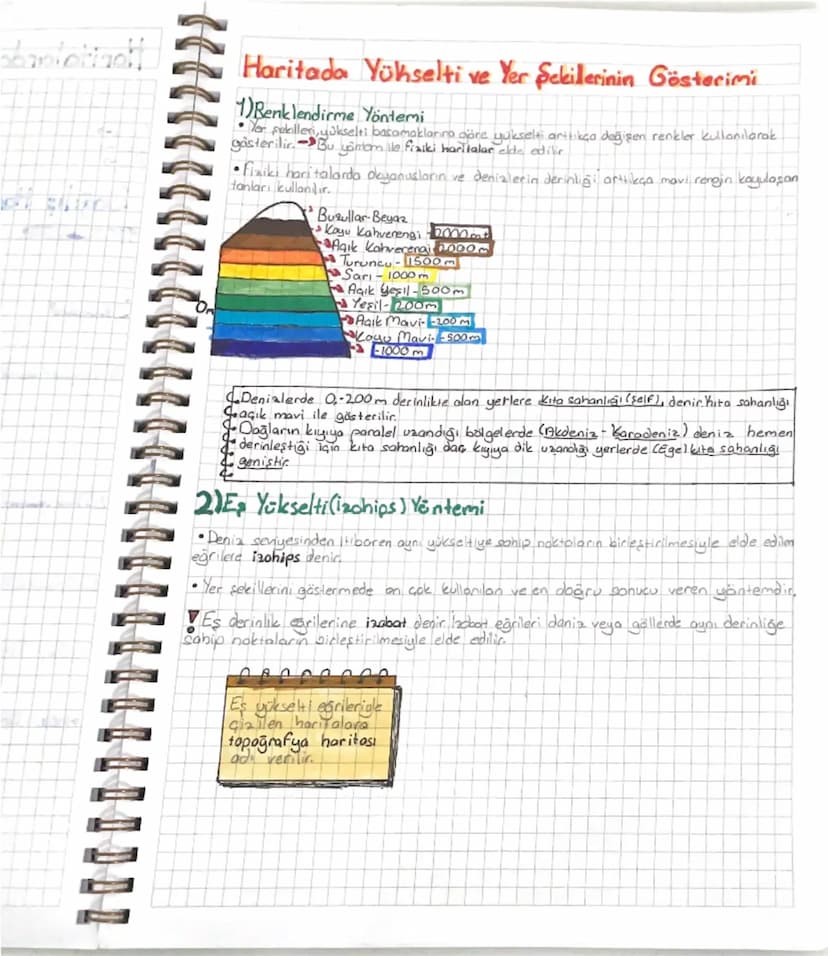 Haritada Yükselti ve Yer Şekillerinin Gösterimi
1)Renklendirme Yöntemi
• Yer şekilleri, yükselti basamaklarına göre yükselti arttıkça değişen renkler kullanılarak
gösterilir. → Bu yöntem ile fiziki haritalar elde edilir
• Fiziki haritalarda okyanusların ve denizlerin derinliği arttıkça mavi rengin koyulaşan
tonları kullanılır.
Buzullar-Beyaz
Koyu Kahverengi - 2000m+
Açık Kahverengi 2000m
Turuncu - 1500m
Sarı - 1000m
Açık Yeşil - 500m
Yeşil - 200m
0m
Açık Mavi - -200m
Koyu Mavi - -500m
-1000m
Denizlerde 0,-200m derinlikte olan yerlere kıta sahanlığı (şelf), denir. kıta sahanlığı
açık mavi ile gösterilir.
Dağların kıyıya paralel uzandığı bölgelerde (Akdeniz - Karadeniz) deniz hemen
derinleştiği için kıta sahanlığı dar, kıyıya dik uzandığı yerlerde (Ege) kıta sahanlığı
geniştir.
2)Eş Yükselti(izohips) Yöntemi
• Deniz seviyesinden itibaren aynı yükseltiye sahip noktaların birleştirilmesiyle elde edilen
eğrilere izohips denir.
• Yer şekillerini göstermede en çok kullanılan ve en doğru sonucu veren yöntemdir.
! Eş derinlik eğrilerine izobat denir. İzobat eğrileri deniz veya göllerde aynı derinliğe
sahip noktaların birleştirilmesiyle elde edilir.
Eş yükselti eğrileriyle
çizilen haritalara
topoğrafya haritası
adı verilir.